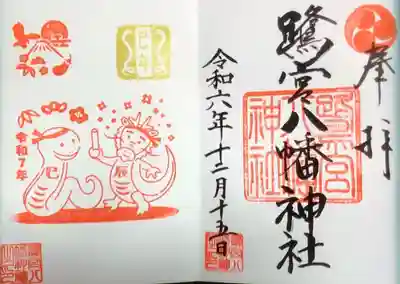 奉拝
鷺宮八幡神社
令和六年十二月十五日
令和7年
巳
辰